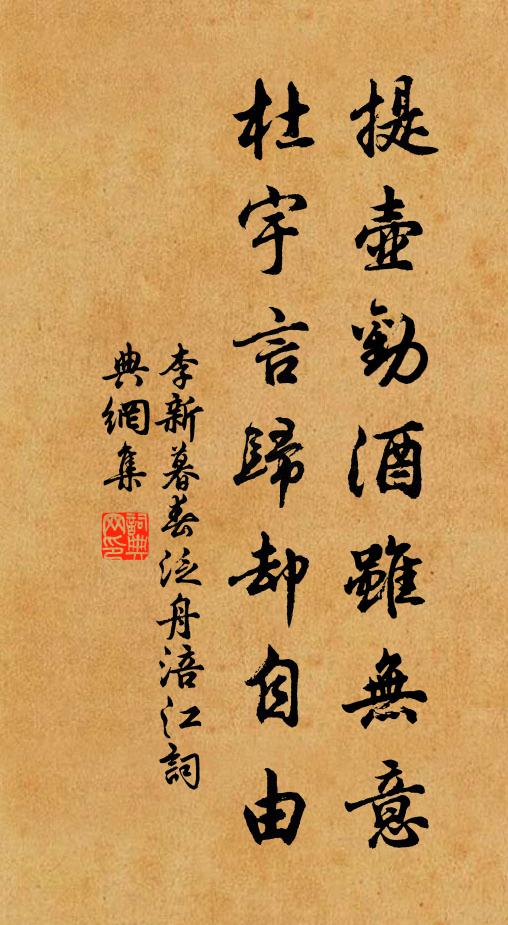 提壺勸酒雖無意
杜宇言歸却自由
李新暮春泛舟涪江詞
典網集
詞典
网印